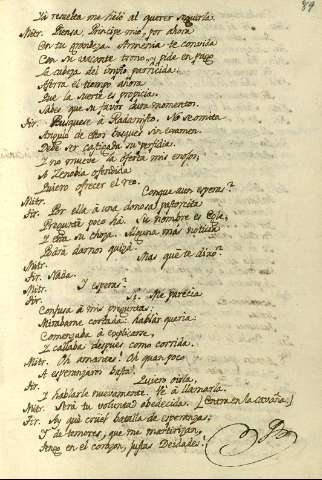 89
La resuelta me heló al querer seguirla.
Mitr. Piensa, Principe mio, por ahora
En tu grandeza. Armenia te convida
Con su vacante trono, y pide en pago
La cabeza del impio parricida.
Aferra el tiempo ahora
Que la suerte es propicia.
Sabes que su favor dura momentos.
Tir. Busquese à Radamisto. No se omita
Angulo de este bosque sin examen.
Debe ser castigada su perfidia.
Y no mueve la oferta mis enojos;
A Zenobia ofendida
Quiero ofrecer el reo.
Mitr. Conque aun esperas?
Tir. Por ella à una donosa pastorcita
Pregunté poco há. Su nombre es Egle,
Y esta su choza. Alguna mas noticia
Podrá darnos quizá.
Mitr. Mas que te dixo?
Tir. Nada.
Mitr. Y esperas?
Tir. Si. Me parecia
Confusa à mi pregunta:
Mirabame cortada: hablar queria:
Comenzaba à explicarse,
Y callaba despues como corrida.
Mitr. Oh amantes! Oh quan poco
A esperanzaros basta!
Tir. Quiero oirla,
Y hablarla nuevamente. Vé à llamarla.
Mitr. Será tu voluntad obedecida. (Entra en la cavaña)
Tir. Ay que cruel batalla de esperanzas,
Y de temores, que me martirizan,
Tengo en el corazon, justas Deidades!